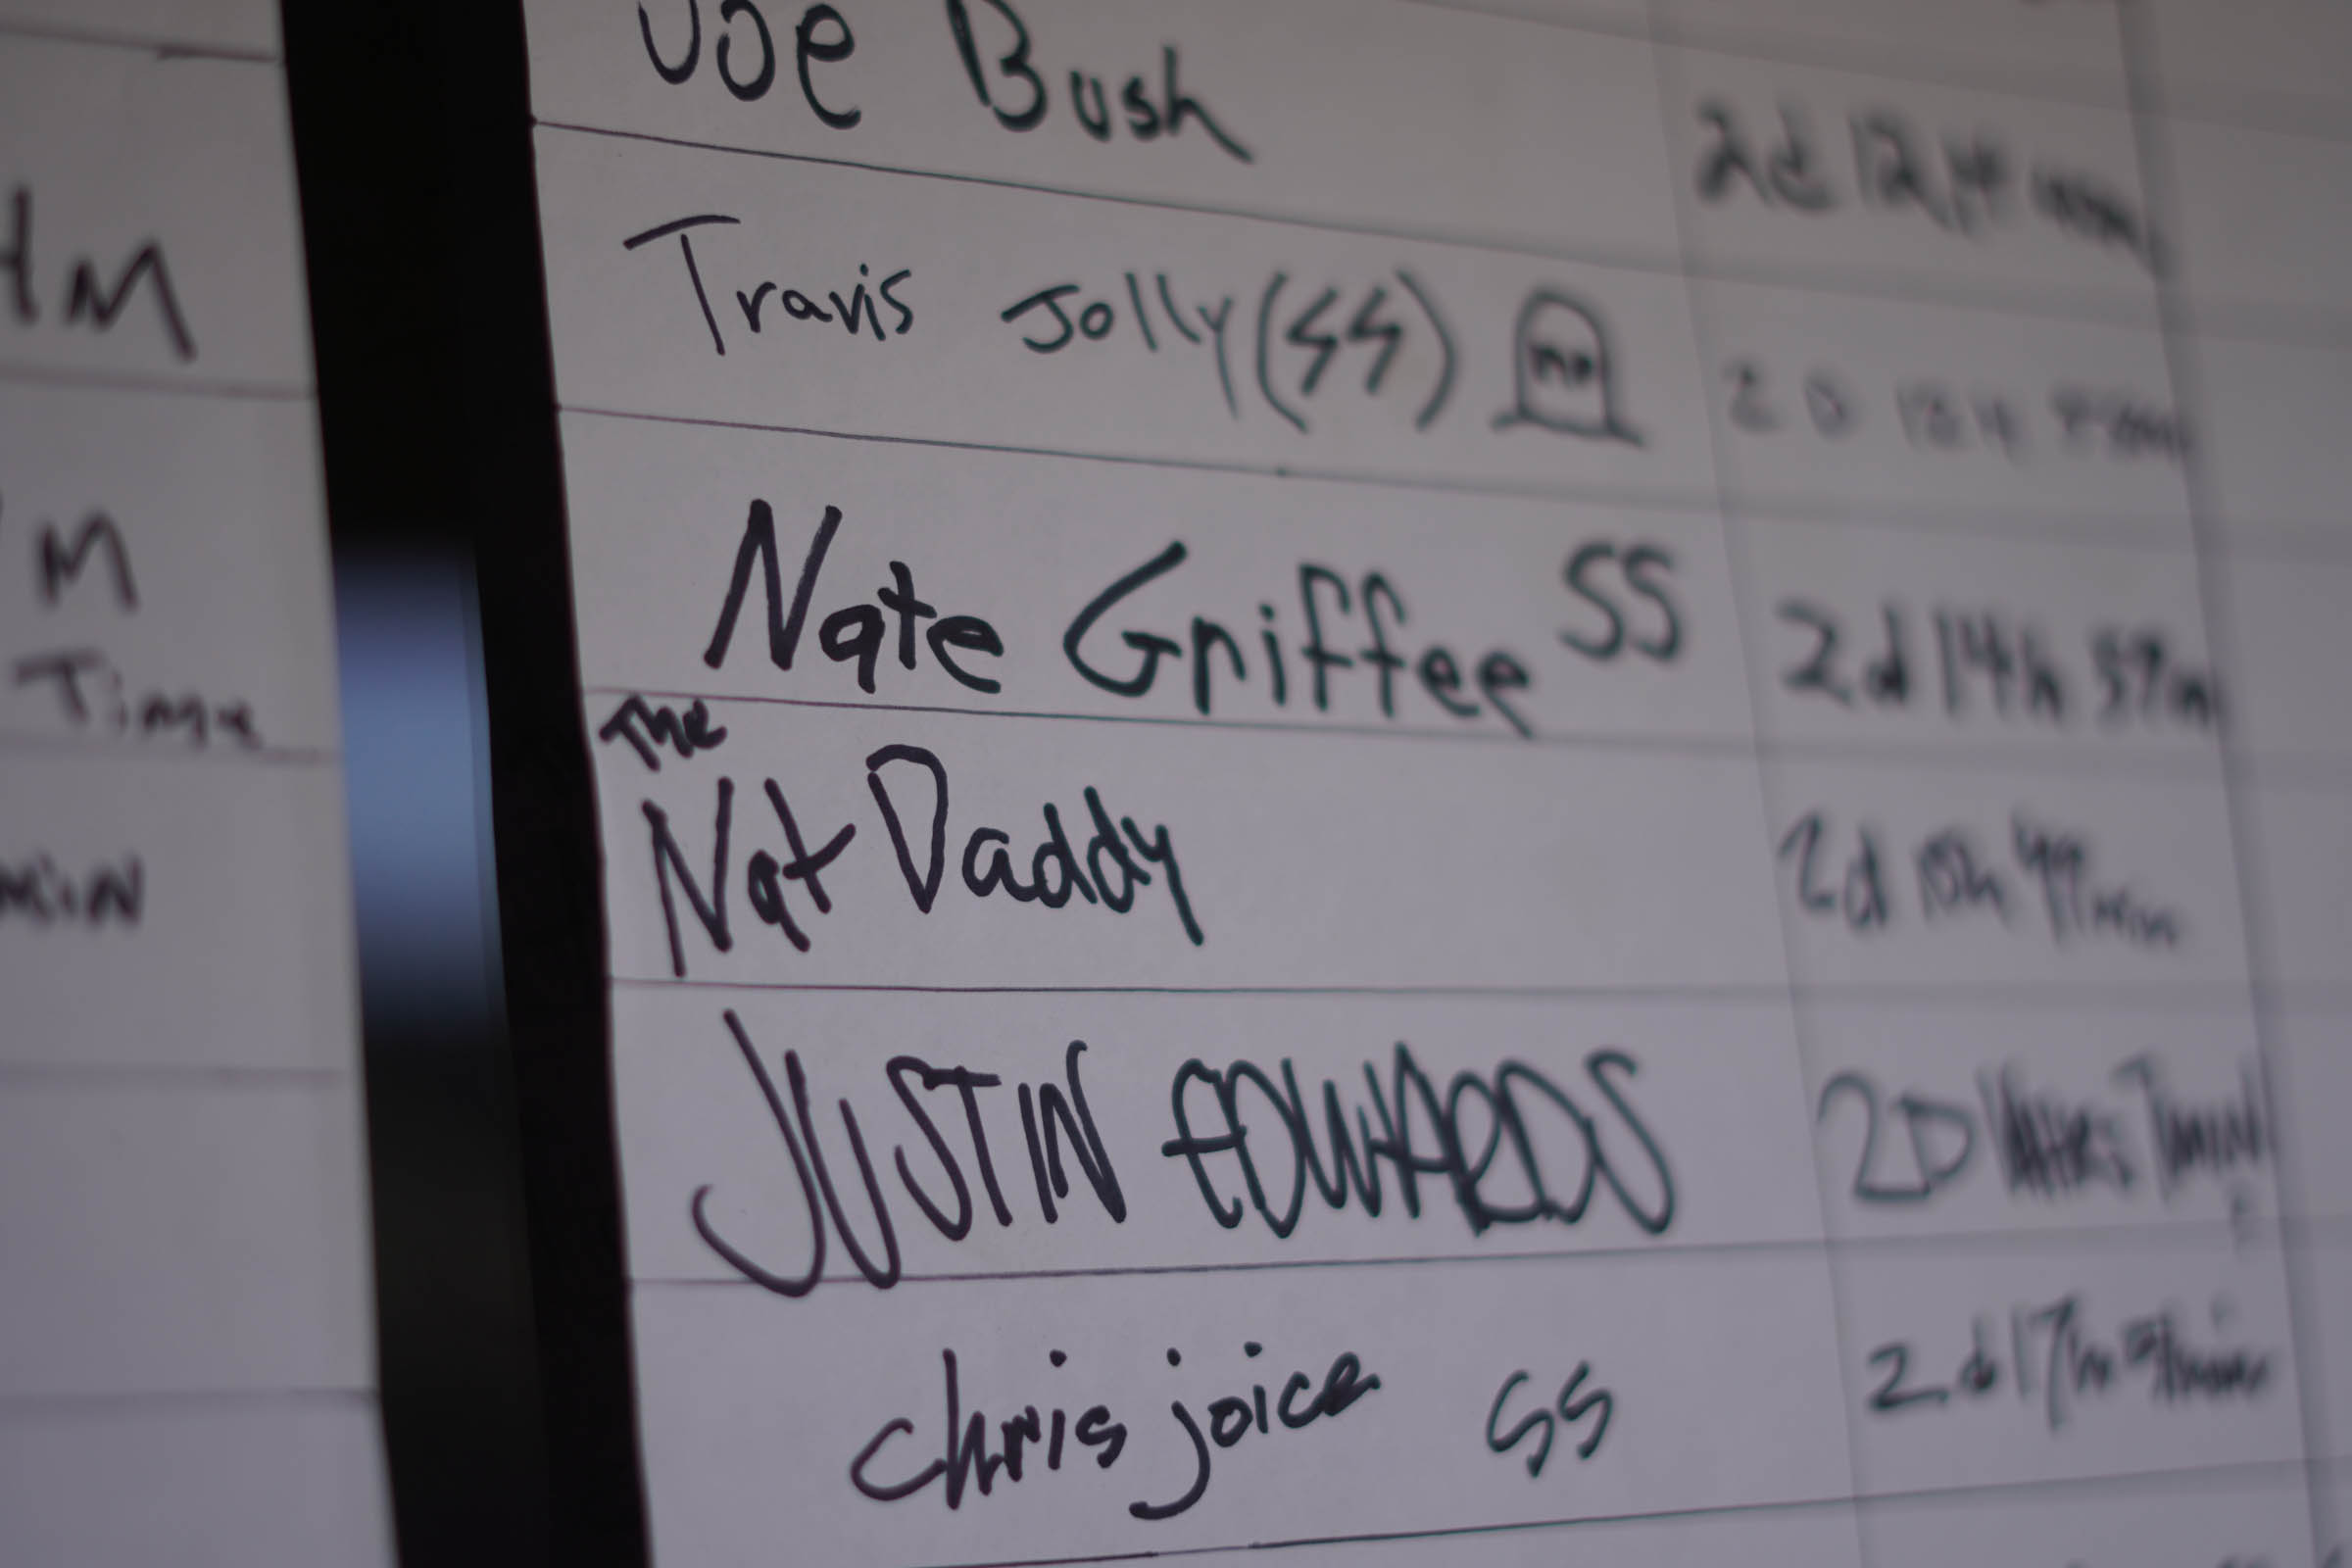 HM
M
Time
MIN
Joe Bush
Travis Jolly (SS)
Nate Griffee SS 2d 14h 57m
The
Nat Daddy 2d 15h 49min
JUSTIN EDWARDS 2D
Chris joice SS 2d 17hr